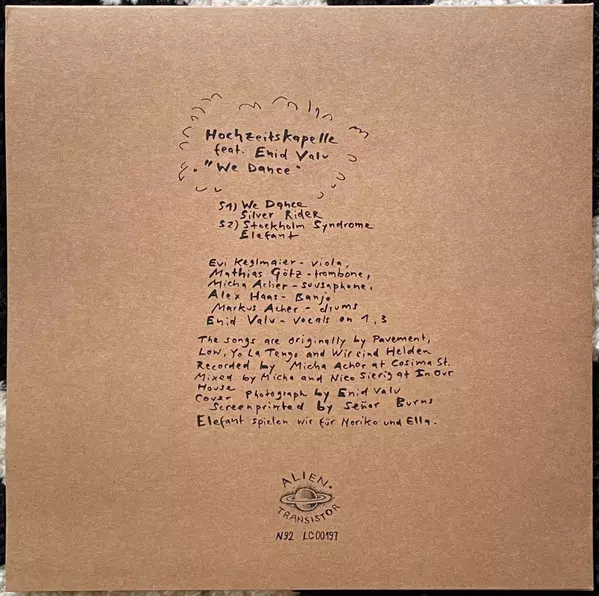 Hochzeitskapelle
feat. Enid Valu
"We Dance"
S1) We Dance
Silver Rider
S2) Stockholm Syndrome
Elefant
Evi Keglmaier - viola,
Mathias Götz - trombone,
Micha Acher - sousaphone,
Alex Haas - Banjo
Markus Acher - drums
Enid Valu - vocals on 1, 3
The songs are originally by Pavement,
Low, Yo La Tengo and Wir sind Helden
Recorded by Micha Acher at Cosima St.
Mixed by Micha and Nico Sierig at In Our
House
Cover Photograph by Enid Valu
Screenprinted by Señor Burns
Elefant spielen wir für Noriko und Ella.
ALIEN
TRANSISTOR
N92 LC00197